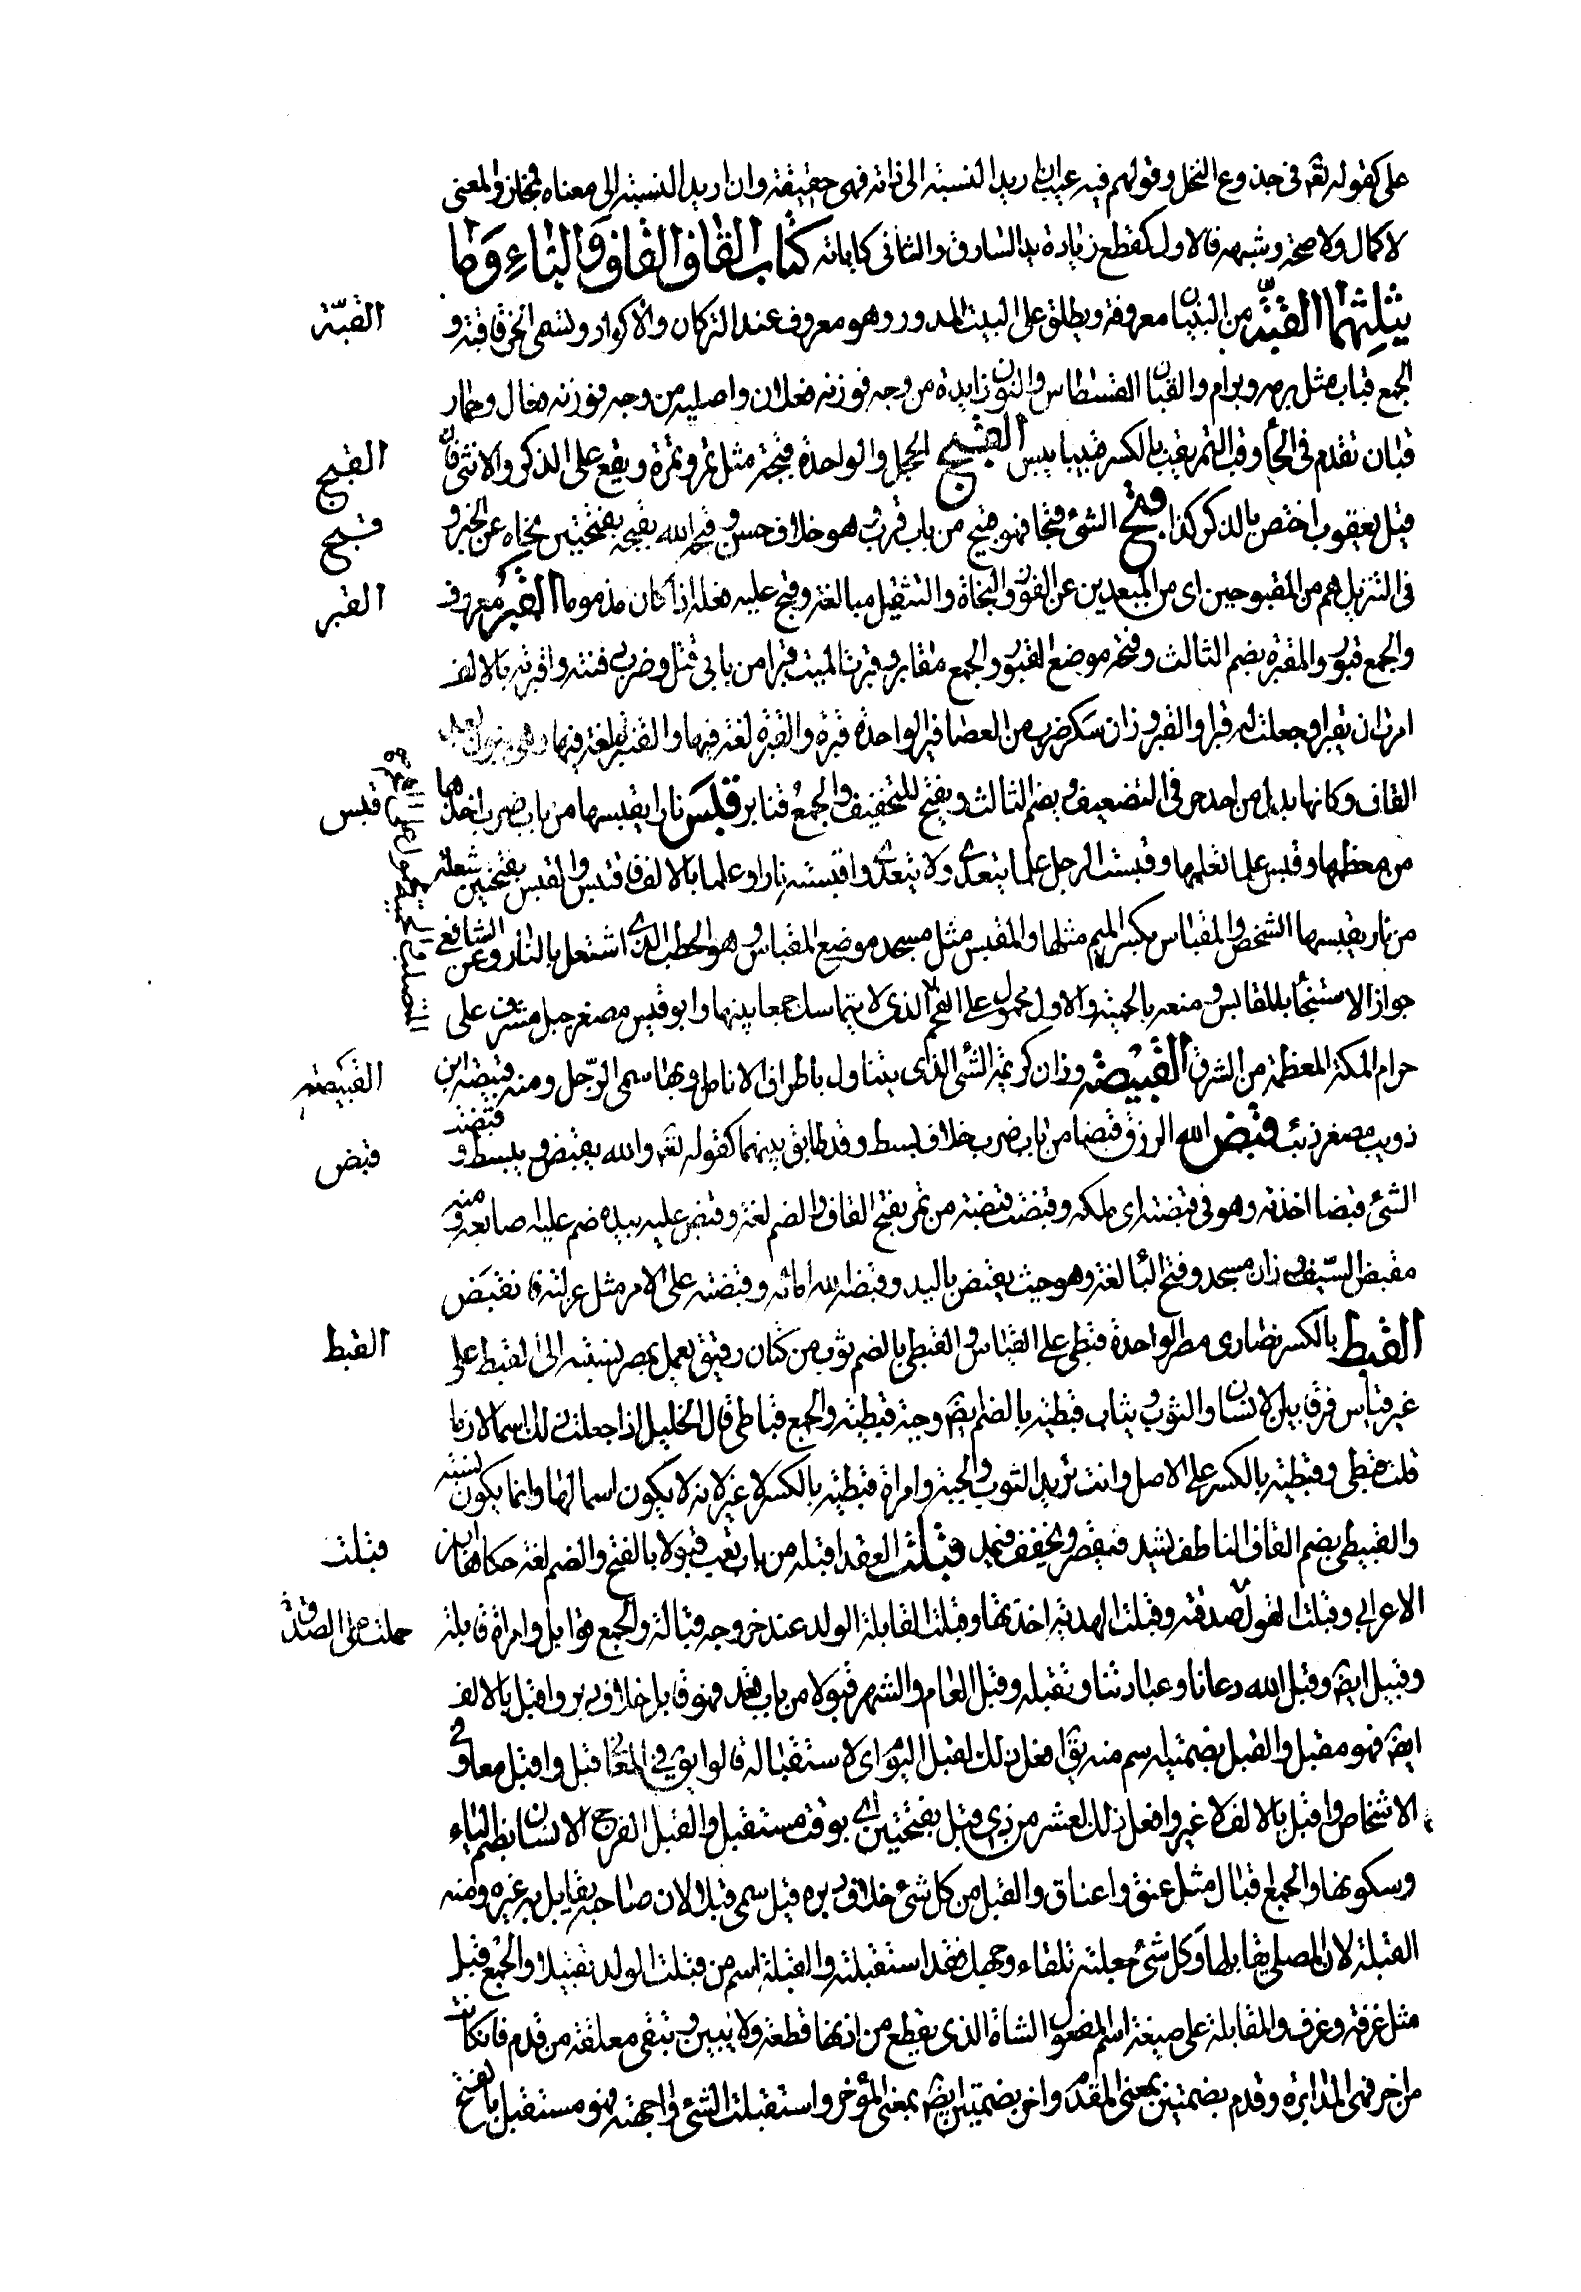 على كقوله تعم فى جذوع النخل وقولهم فيه عيب ان اريد النسبة الى ذاته فهى حقيقة وان اريد النسبة الى معناه فمجاز والمعنى
لا كمال ولا صحة وشبهه فالاول كقطع زيادة يد السارق والثانى كاباته كتاب القاف القاف والباء وما
يثلثهما القبة من البنيان معروفة ويطلق على البيت المدور وهو معروف عند التركمان والاكراد وتسمى الخرقاقة و
الجمع قباب مثل برمه وبرام والقبان القسطاس والنون زايدة من وجه فوزنه فعلان واصلية من وجه فوزنه فعال وحمار
قبان تقدم فى الحاء وقب التمر يقب بالكسر قبيبا يبس القبج الحجل والواحدة قبجة مثل تمر وتمرة ويقع على الذكر والانثى فان
قيل يعقوب اختص بالذكر كذا قبح الشئ قبحا فهو قبيح من باب قرب وهو خلاف حسن وقبحه الله يقبحه بفتحتين نحاه عن الخير و
فى التنزيل هم من المقبوحين اى من المبعدين عن الفوز والنجاة والتثقيل مبالغة وقبح عليه فعله اذا كان مذموما القبر معروف
والجمع قبور والمقبرة بضم الثالث وفتحه موضع القبور والجمع مقابر وقبرت الميت قبرا من بابى قتل وضرب دفنته واقبرته بالالف
امرت ان يقبر او جعلت له قبرا والقبر وزان سكر ضرب من العصافير الواحدة قبرة والقبرة لغة فيها والقنبر لغة فيها
القاف وكانها بدل من احد حرفى التضعيف وبضم الثالث ويفتح للتخفيف والجمع قنابر قبس نارا يقبسها من باب ضرب اخذها
من معظمها وقبس علما تعلمها وقبست الرجل علما يتعدى ولا يتعدى واقبسته نارا وعلما بالالف فاقتبس والقبس بفتحتين شعلة
من نار يقبسها الشخص والمقباس بكسر الميم مثلها والمقبس مثل مسجد موضع المقباس وهو الحطب الذى اشتعل بالنار وعن الشافعى
جواز الاستنجاء بالمقابس ومنعه بالحممة والاول محمول على الفحم الذى لا يتماسك جمعا بينهما وابو قبيس مصغر جبل مشرف على
حرام المكة المعظمة من الشرق القبيصة وزان كريمة الشئ الذى يتناول باطراف الانامل وبها سمى الرجل ومنه قبيصة ابن
ذويب مصغر ذئب قبض الله الرزق قبضا من باب ضرب خلاف بسط وقد طابق بينهما كقوله تعم والله يقبض ويبسط وقبضت
الشئ قبضا اخذته وهو فى قبضته اى ملكه وقبضت قبضة من تمر بفتح القاف والضم لغة وقبض عليه بيده ضم عليه صابعه ومنه
مقبض السيف وزان مسجد وفتح الباء لغة وهو حيث يقبض باليد وقبضه الله اماته وقبضته على الامر مثل عزلته فانقبض
القبط بالكسر نصارى مصر الواحدة قبطى على القياس والقبطى بالضم ثوب من كتان رقيق يعمل بمصر نسبته الى القبط على
غير قياس فرقا بين الانسان والثوب وثياب قبطية بالضم ايضا وجبة قبطية والجمع قباطى قال الخليل اذا جعلت ذلك اسما لازما
قلت قبطى وقبطية بالكسر على الاصل وانت تريد الثوب والجبة وامراة قبطية بالكسر لا غير لانه لا يكون اسما لها وانما يكون نسبة
والقبيطى بضم القاف الناطف يشدد فيقصر ويخفف فيمد قبلت العقد اقبله من باب تعب قبولا بالفتح والضم لغة حكاها ابن
الاعرابى وقبلت القول صدقته وقبلت الهدية اخذتها وقبلت القابلة الولد عند خروجه قبالة والجمع قوابل وامراة قابلة
وقبيل ايضا وقبل الله دعانا وعبادتنا وتقبله وقبل العام والشهر قبولا من باب قعد فهو قابل خلاف دبر واقبل بالالف
ايضا فهو مقبل والقبل بضمتين اسم منه يق افعل ذلك لقبل اليوم اى لاستقباله قالوا يق فى المعانى قبل واقبل معا وفى
الاشخاص واقبل بالالف لا غير وافعل ذلك لعشر من ذى قبل بفتحتين اى بوقت مستقبل والقبل الفرج الانسان بضم الباء
وسكونها والجمع اقبال مثل عنق واعناق والقبل من كل شئ خلاف دبره قيل سمى قبلا لان صاحبه يقابل به غيره ومنه
القبلة لان المصلى يقابلها وكل شئ جعلته تلقاء وجهك فقد استقبلته والقبلة اسم من قبلت الولد تقبيلا والجمع قبل
مثل غرفة وغرف والمقابلة على صيغة اسم المفعول الشاة الذى يقطع من اذنها قطعة ولا يبين وتبقى معلقة من قدم فان كانت
من اخر فهى المدابرة وقدم بضمتين بمعنى المقدم واخر بضمتين ايضا بمعنى المؤخر واستقبلت الشئ واجهته فهو مستقبل بالفتح
القبة
القبج
قبح
القبر
قبس
القبيصة
قبض
القبط
قبلت